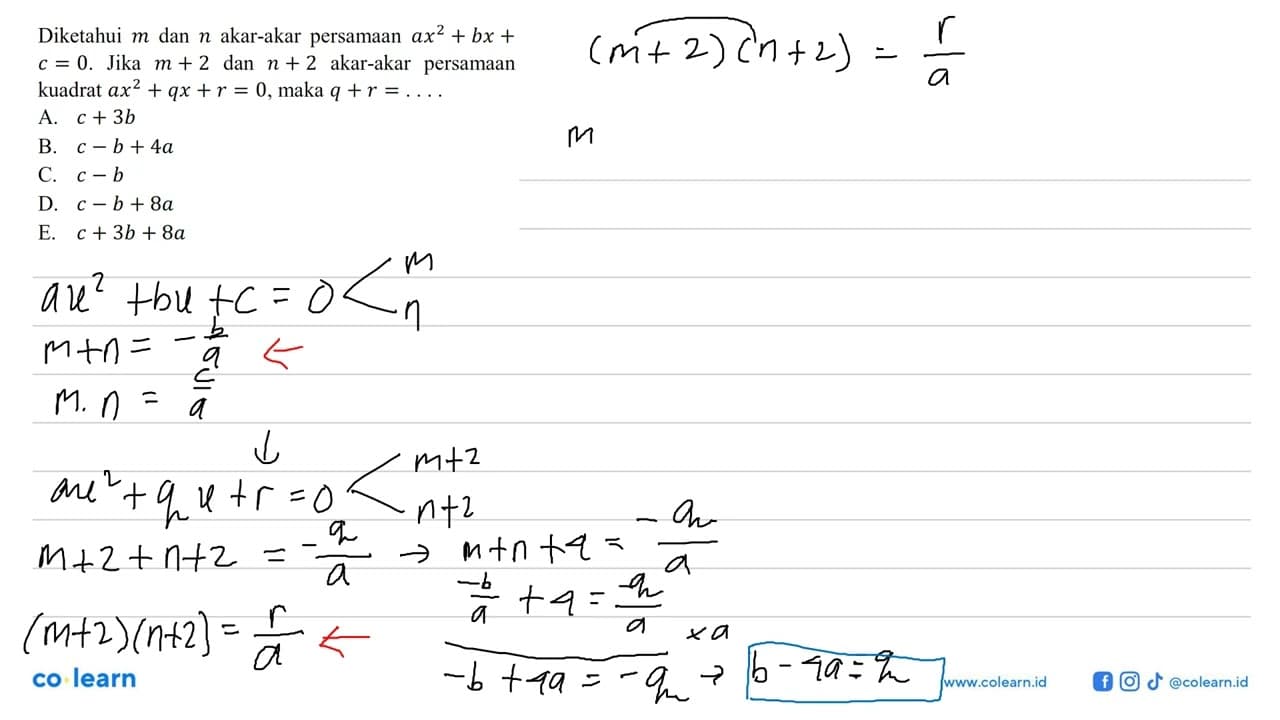 Diketahui m dan n akar-akar persamaan ax² + bx +
c = 0. Jika m + 2 dan n + 2 akar-akar persamaan
kuadrat ax² + qx + r = 0, maka q + r = . . . .
A. c + 3b
B. c − b + 4a
C. c − b
D. c − b + 8a
E. c + 3b + 8a
(m+2)(n+2) = r/a
m
ax² + bx + c = 0 < m n
m+n = -b/a ←
m. n = c/a
↓
ax² + qx + r = 0 < m+2 n+2
m+2+n+2 = -q/a → m+n+4 = -q/a
-b/a + 4 = -q/a
×a
(m+2)(n+2) = r/a ←
-b + 4a = -q → b - 4a = q
co·learn
www.colearn.id
@colearn.id